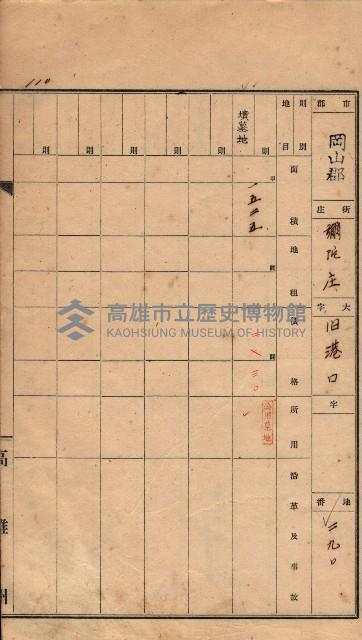 110
市郡
岡山郡
街庄
彌陀庄
大字
旧港口
字
地番
二九〇
則別
地目
面積
地租
價格
所用沿革及事故
墳墓地
則
甲
一五二五
圓
圓
公用墓地
則
則
則
則
則
高雄州
高雄市立歷史博物館
KAOHSIUNG MUSEUM OF HISTORY